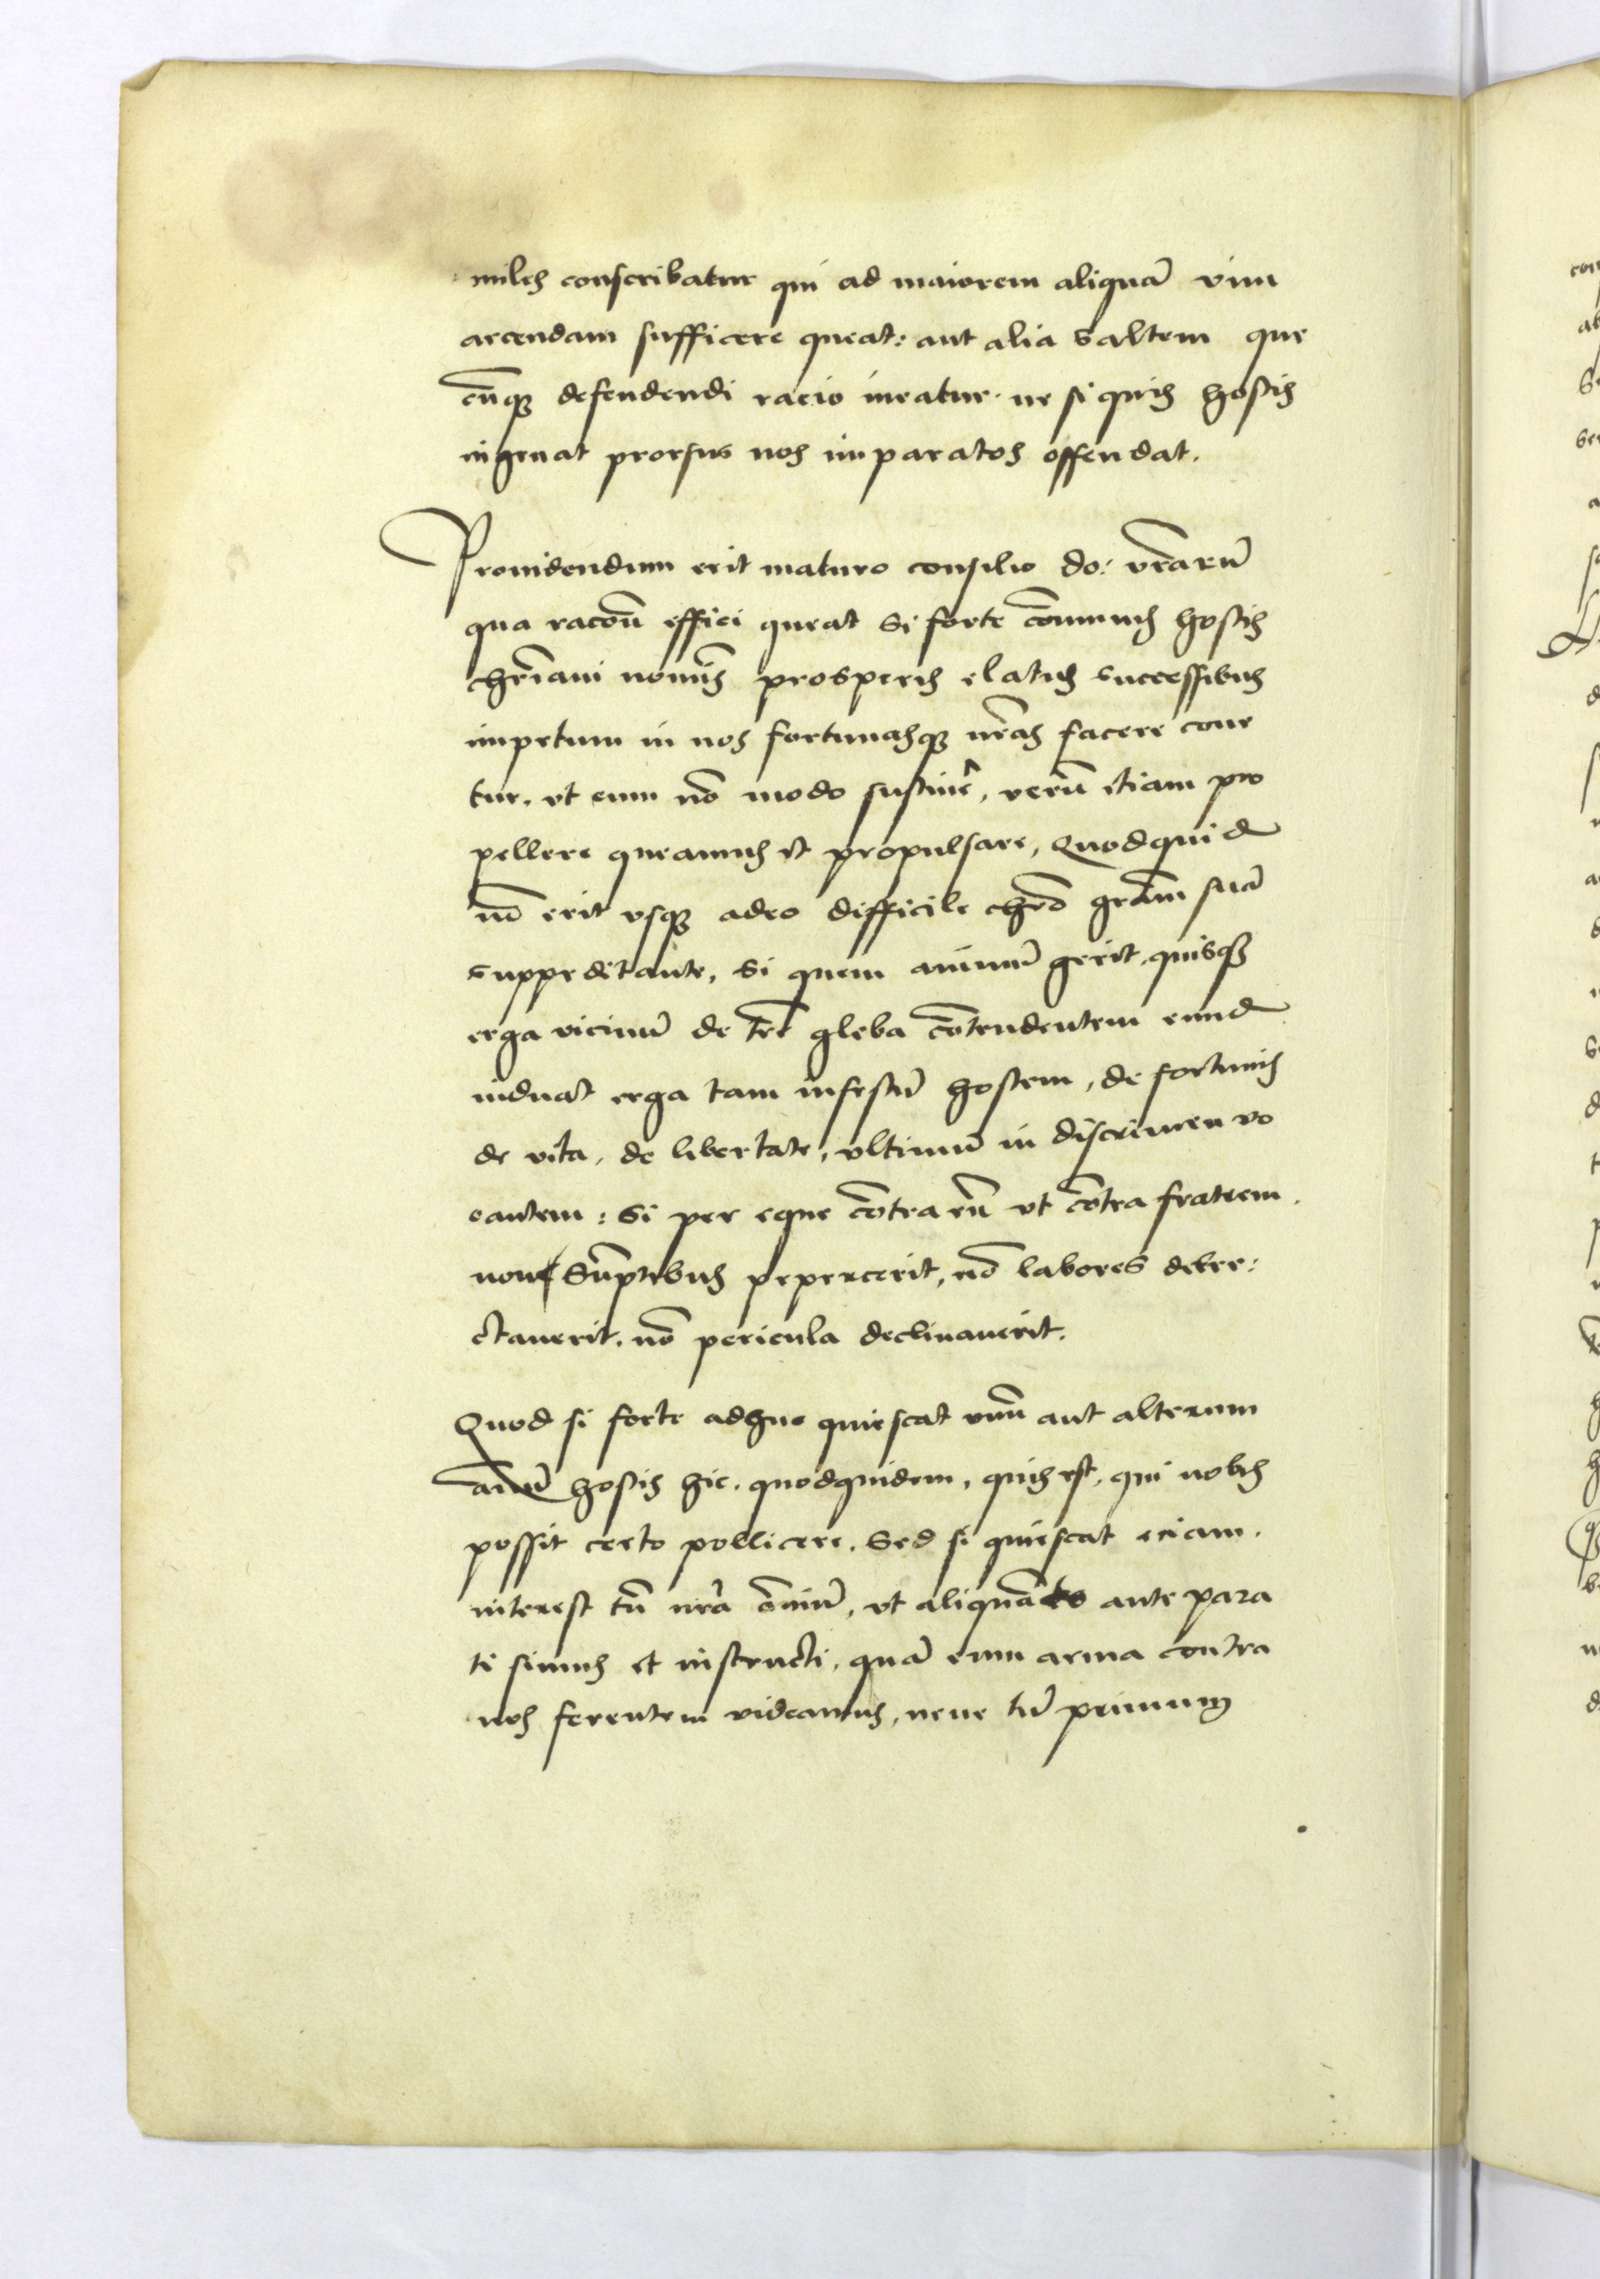 miles conscribatur qui ad maiorem aliquā vim
arcendam sufficere queat: aut alia saltem que
cūq3 defendendi racio ineatur. ne si quis hostis
ingruat prorsus nos imparatos offendat.
Prouidendum erit maturo consilio do: vr̄arū
qua racōn̄ effici queat Si forte cōmunis hostis
chr̄iani nomīs prosperis elatus successibus
impetum in nos fortunasq3 nr̄as facere cone
tur. vt eum nō modo sustinē, verū etiam pro
pellere queamus et propulsare, Quodquid
nō erit vsq3 adeo difficile chrō grām suā
suppeditante, Si quem animū gerit quisq3
erga vicinū de trē gleba cōtendentem eund
induat erga tam infestū hostem, de fortunis
de vita, de libertate, vltimū in discrimen vo
cantem: Si per eque cōtra eū vt cōtra fratrem
non Sūptibus pepercerit, nō labores detre:
ctauerit. nō pericula declinauerit.
Quod si forte adhuc quiescat vnū aut alterum
annū hostis hic. quodquidem, quis est, qui nobis
possit certo pollicere. Sed si quiescat eciam.
interest tn̄ nr̄a ōmiū, vt aliquāto ante para
ti simus et instructi, quā eum arma contra
nos ferentem videamus, neue tū primum